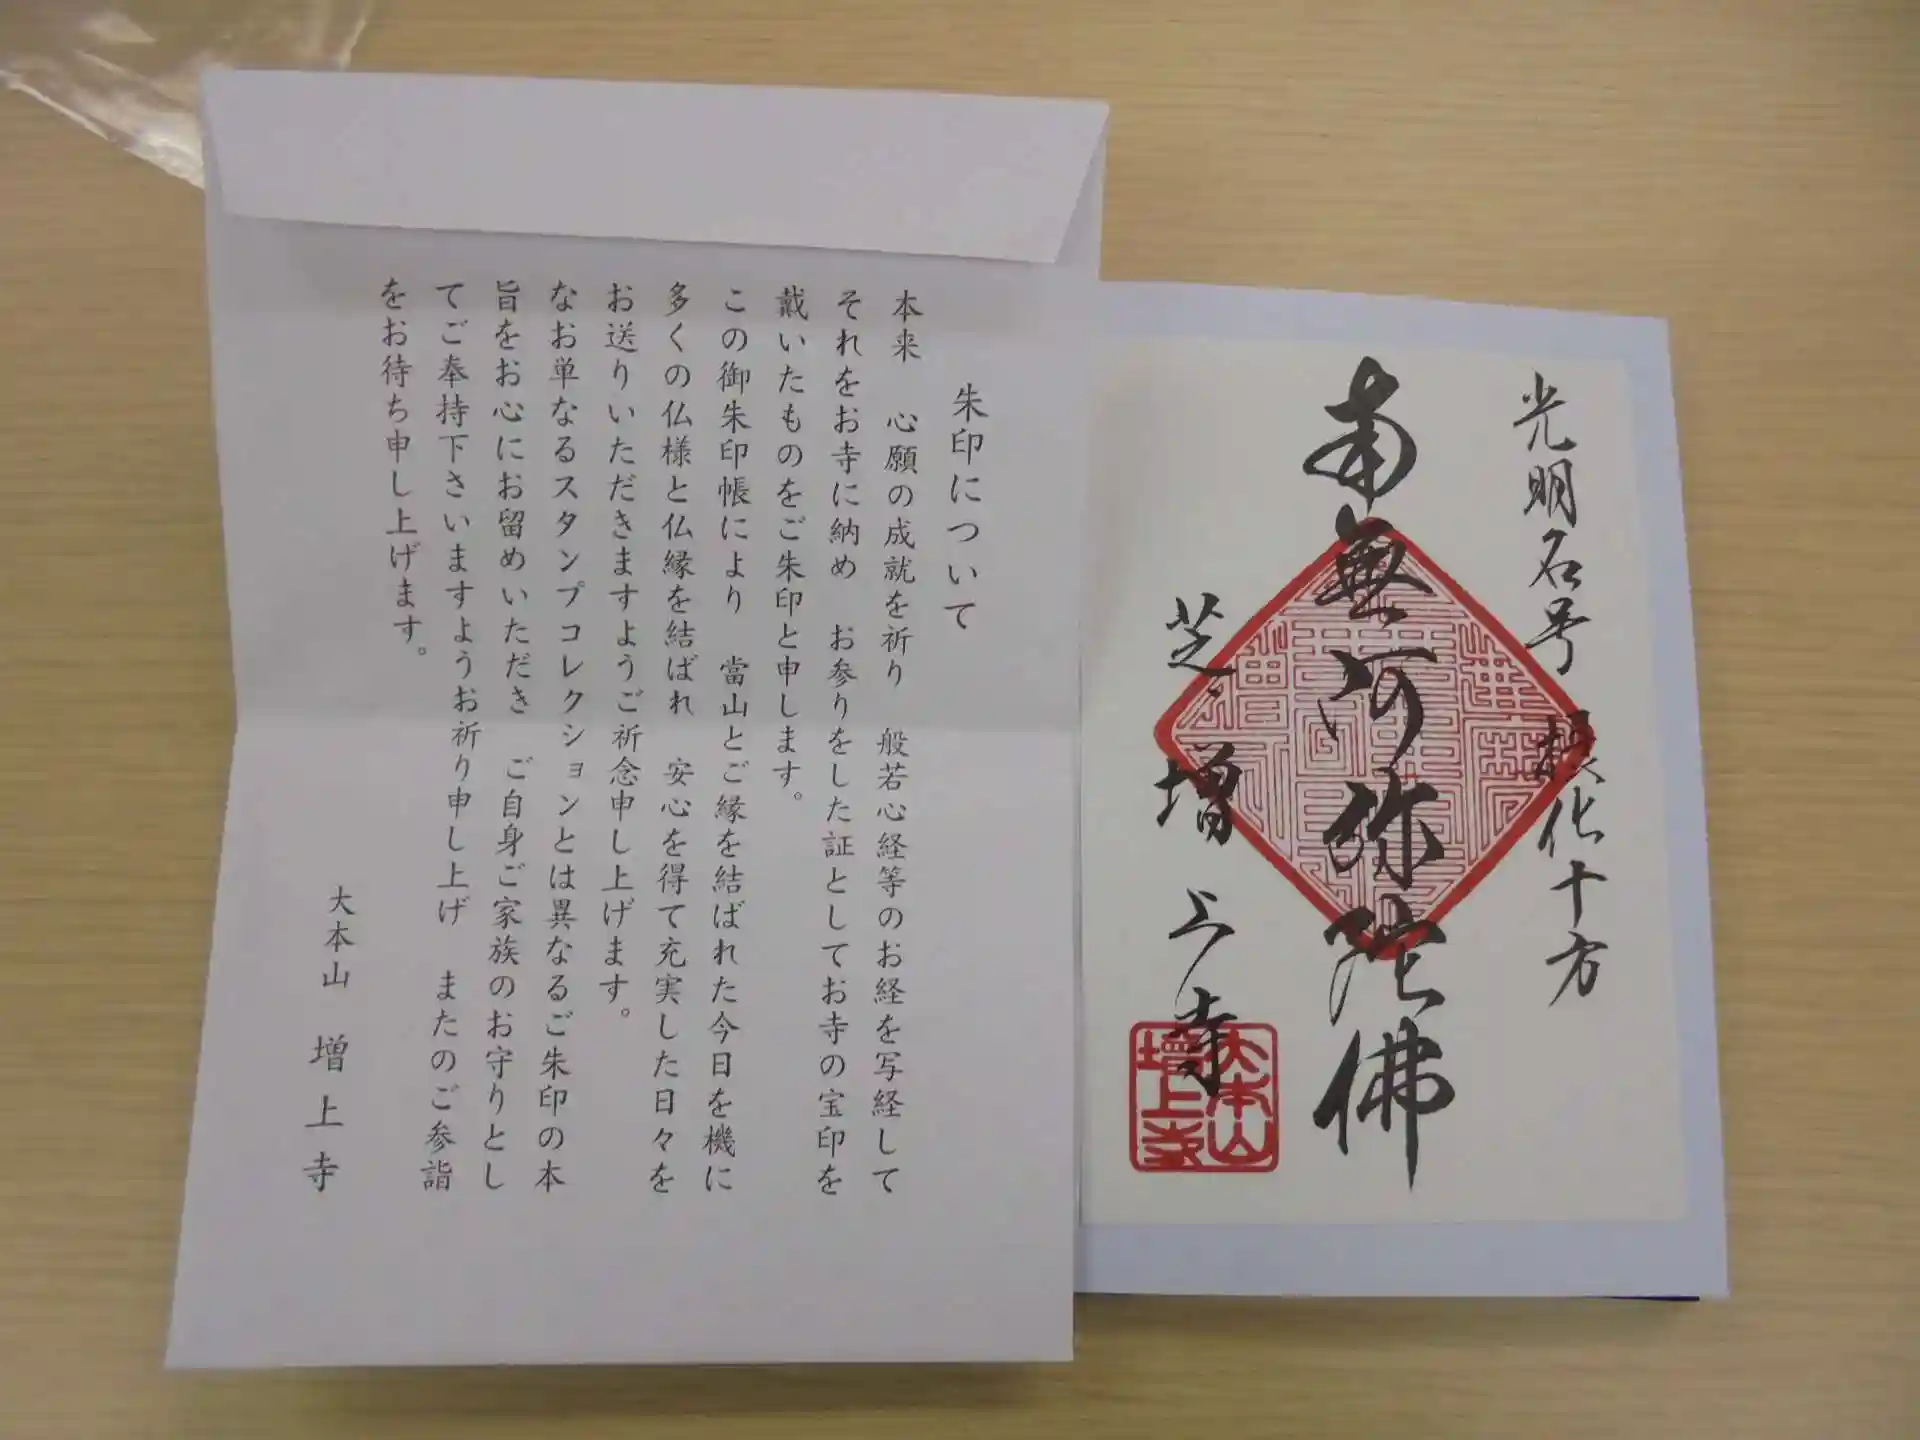 朱印について
本来　心願の成就を祈り　般若心経等のお経を写経して
それをお寺に納め　お参りをした証としてお寺の宝印を
戴いたものをご朱印と申します。
この御朱印帳により　當山とご縁を結ばれた今日を機に
多くの仏様と仏縁を結ばれ　安心を得て充実した日々を
お送りいただきますようご祈念申し上げます。
なお単なるスタンプコレクションとは異なるご朱印の本
旨をお心にお留めいただき　ご自身ご家族のお守りとし
てご奉持下さいますようお祈り申し上げ　またのご参詣
をお待ち申し上げます。
大本山　増上寺
光明名号　摂化十方
南無阿弥陀佛
芝　増上寺
大本山
増上寺